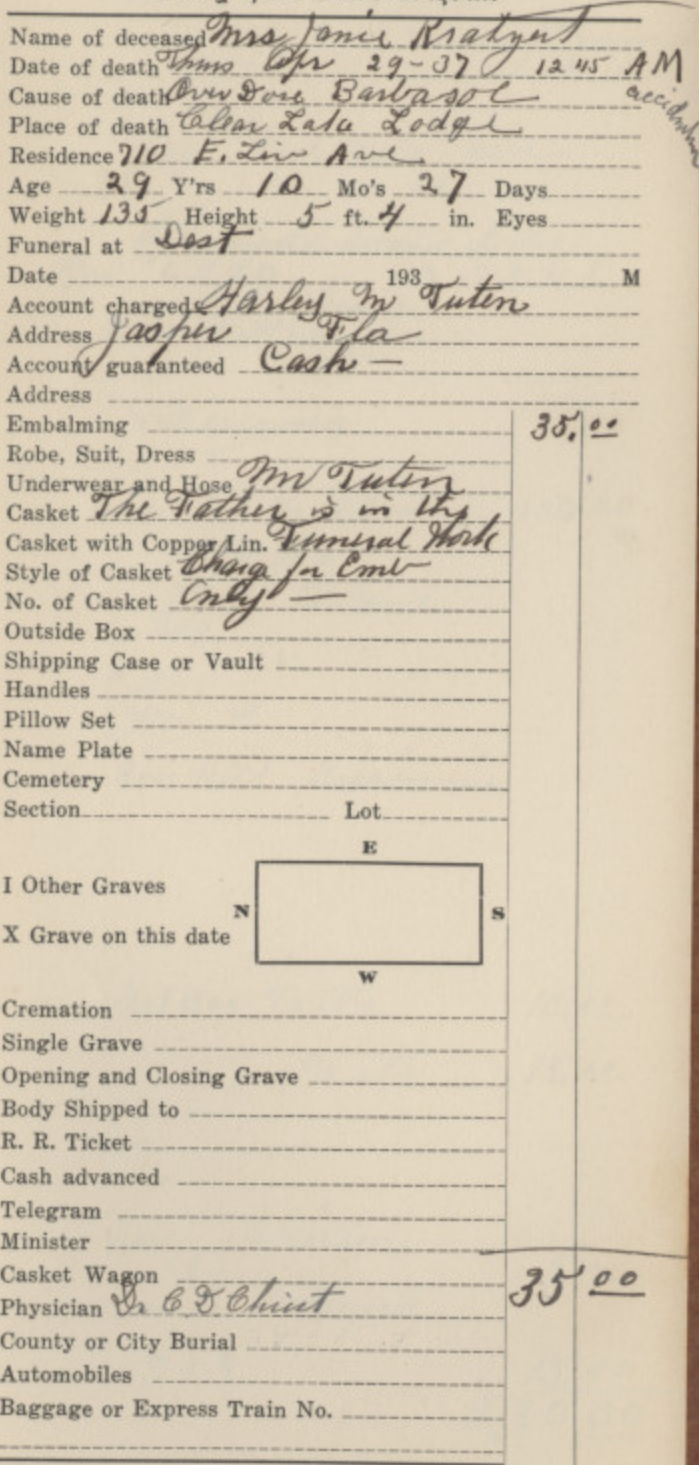 Name of deceased Mrs Janie Kratzert
Date of death Thurs Apr 29-37 12 45 AM
Cause of death Over Dose Barbasol accidental
Place of death Clear Lake Lodge
Residence 710 E. Liv Ave
Age 29 Y'rs 10 Mo's 27 Days
Weight 135 Height 5 ft. 4 in. Eyes
Funeral at Dest
Date 193 M
Account charged Harley M Tuten
Address Jasper Fla
Account guaranteed Cash —
Address
Embalming 35.00
Robe, Suit, Dress
Underwear and Hose Mr Tuten
Casket The Father is in the
Casket with Copper Lin. Funeral Work
Style of Casket Charge for Emb
No. of Casket Only —
Outside Box
Shipping Case or Vault
Handles
Pillow Set
Name Plate
Cemetery
Section Lot
E
I Other Graves
N S
X Grave on this date
W
Cremation
Single Grave
Opening and Closing Grave
Body Shipped to
R. R. Ticket
Cash advanced
Telegram
Minister
Casket Wagon 35 00
Physician Dr C D Christ
County or City Burial
Automobiles
Baggage or Express Train No.